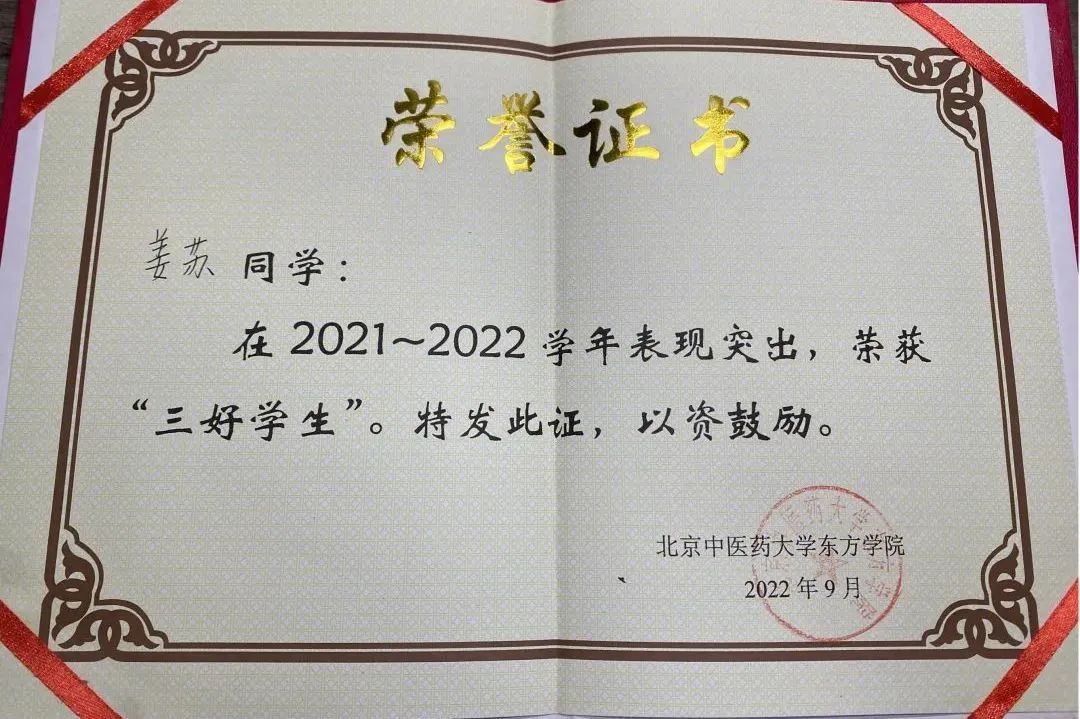 荣誉证书
姜苏 同学：
在 2021~2022 学年表现突出，荣获
“三好学生”。特发此证，以资鼓励。
北京中医药大学东方学院
2022 年 9 月